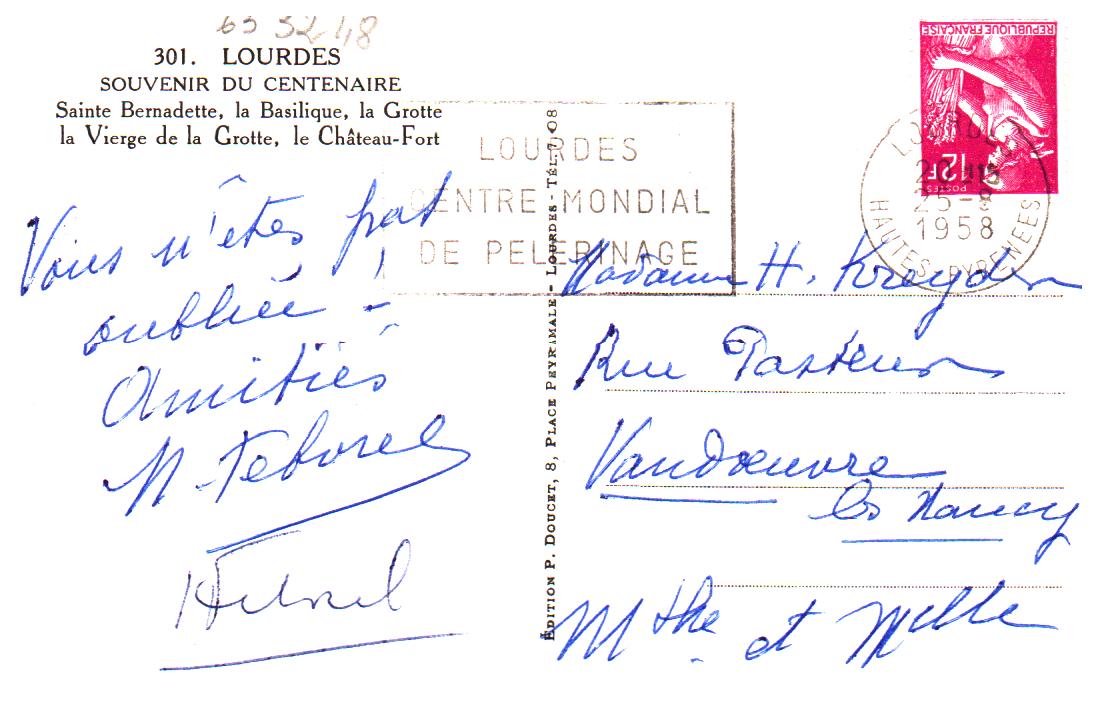 65 32 48
301. LOURDES
SOUVENIR DU CENTENAIRE
Sainte Bernadette, la Basilique, la Grotte
la Vierge de la Grotte, le Château-Fort
Vous n'êtes pas
oubliée -
Amitiés
LOURDES
CENTRE MONDIAL
DE PELERINAGE
EDITION P. DOUCET, 8, PLACE PEYRAMALE - LOURDES - TÉL. 7.08
REPUBLIQUE FRANÇAISE
POSTES
12F
LOURDES
25-8
1958
HAUTES-PYRENEES
Madame H.
Rue Pasteur
Vandœuvre
les Nancy
Mthe et